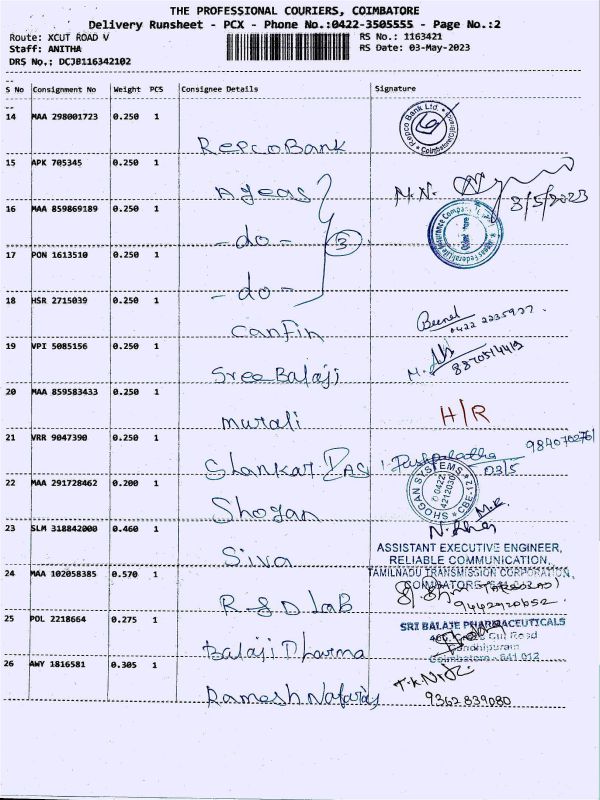 THE PROFESSIONAL COURIERS, COIMBATORE
Delivery Runsheet - PCX - Phone No.:0422-3505555 - Page No.:2
Route: XCUT ROAD V
RS No.: 1163421
Staff: ANITHA
RS Date: 03-May-2023
DRS No.: DCJB116342102
S No Consignment No Weight PCS Consignee Details Signature
14 MAA 298001723 0.250 1
RepcoBank
Repco Bank Ltd.
15 APK 705345 0.250 1
Ageas
M.N.
3/5/2023
16 MAA 859869189 0.250 1
-do-
3
17 PON 1613510 0.250 1
-do-
18 HSR 2715039 0.250 1
Canfin
0422 2235907
19 VPI 5085156 0.250 1
Sree Balaji
20 MAA 859583433 0.250 1
Murali
H/R
21 VRR 9047390 0.250 1
Shankar IAS
Pushpalatha
03/5
22 MAA 291728462 0.200 1
Shogan
SHOGAN SYSTEMS
0422
4212030
CBE-12
23 SLM 318842000 0.460 1
Siva
ASSISTANT EXECUTIVE ENGINEER,
RELIABLE COMMUNICATION,
TAMILNADU TRANSMISSION CORPORATION,
COIMBATORE
24 MAA 102058385 0.570 1
R&D Lab
25 POL 2218664 0.275 1
Balaji Pharma
SRI BALAJE PHARMACEUTICALS
Gandhipuram
Coimbatore - 641 012
26 AWY 1816581 0.305 1
Ramesh Nataraj
9362839080